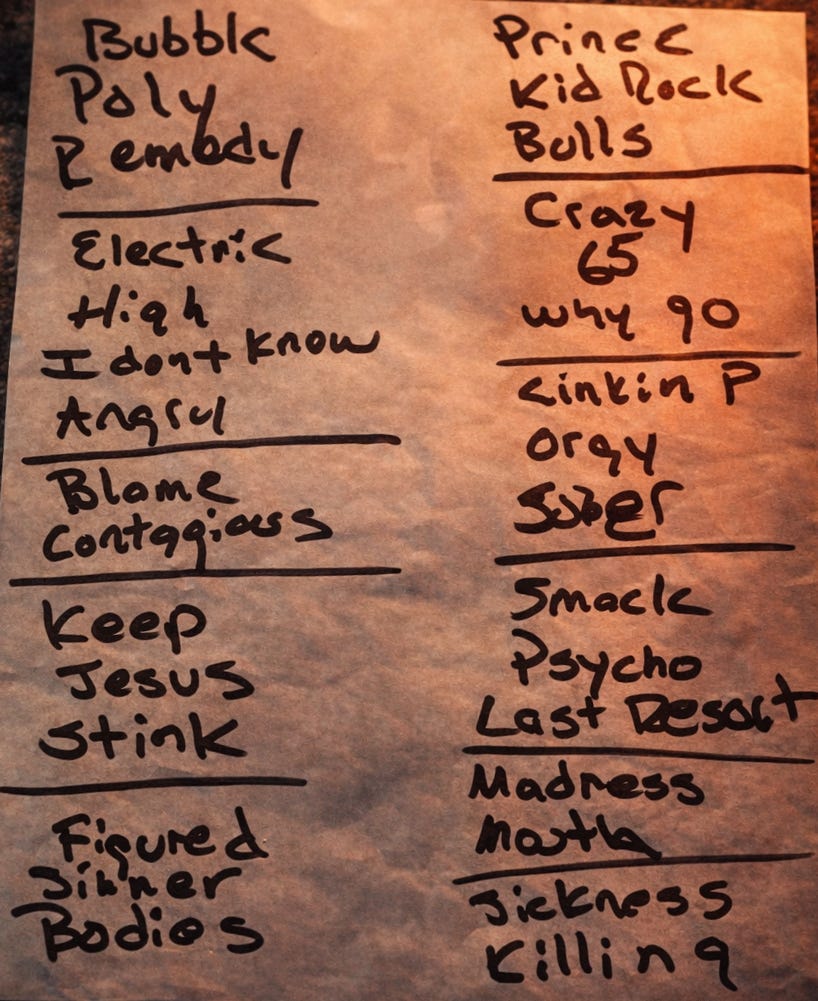 Bubble
Poly
Remedy
Electric
High
I dont know
Angry
Blame
Contagious
Keep
Jesus
Stink
Figured
Sinner
Bodies
Prince
Kid Rock
Bulls
Crazy
65
Why 90
Linkin P
Orgy
Sober
Smack
Psycho
Last Resort
Madness
Mouth
Sickness
Killing